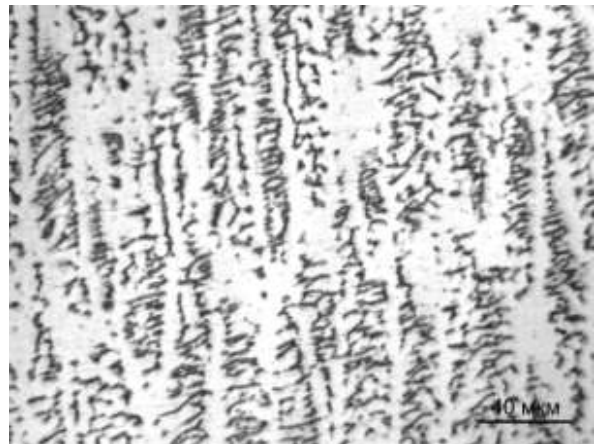 40 мкм